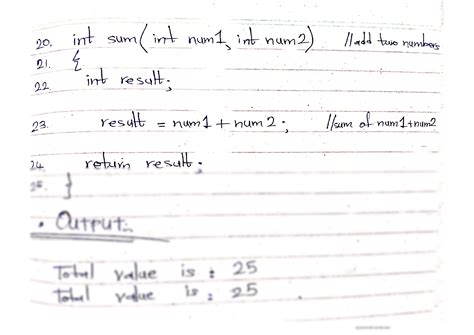 20. int sum(int num1, int num2) //add two numbers
21. {
22 int result;
23. result = num1 + num2; //sum of num1+num2
24 return result;
25. }
• Output:-
Total value is : 25
Total value is : 25